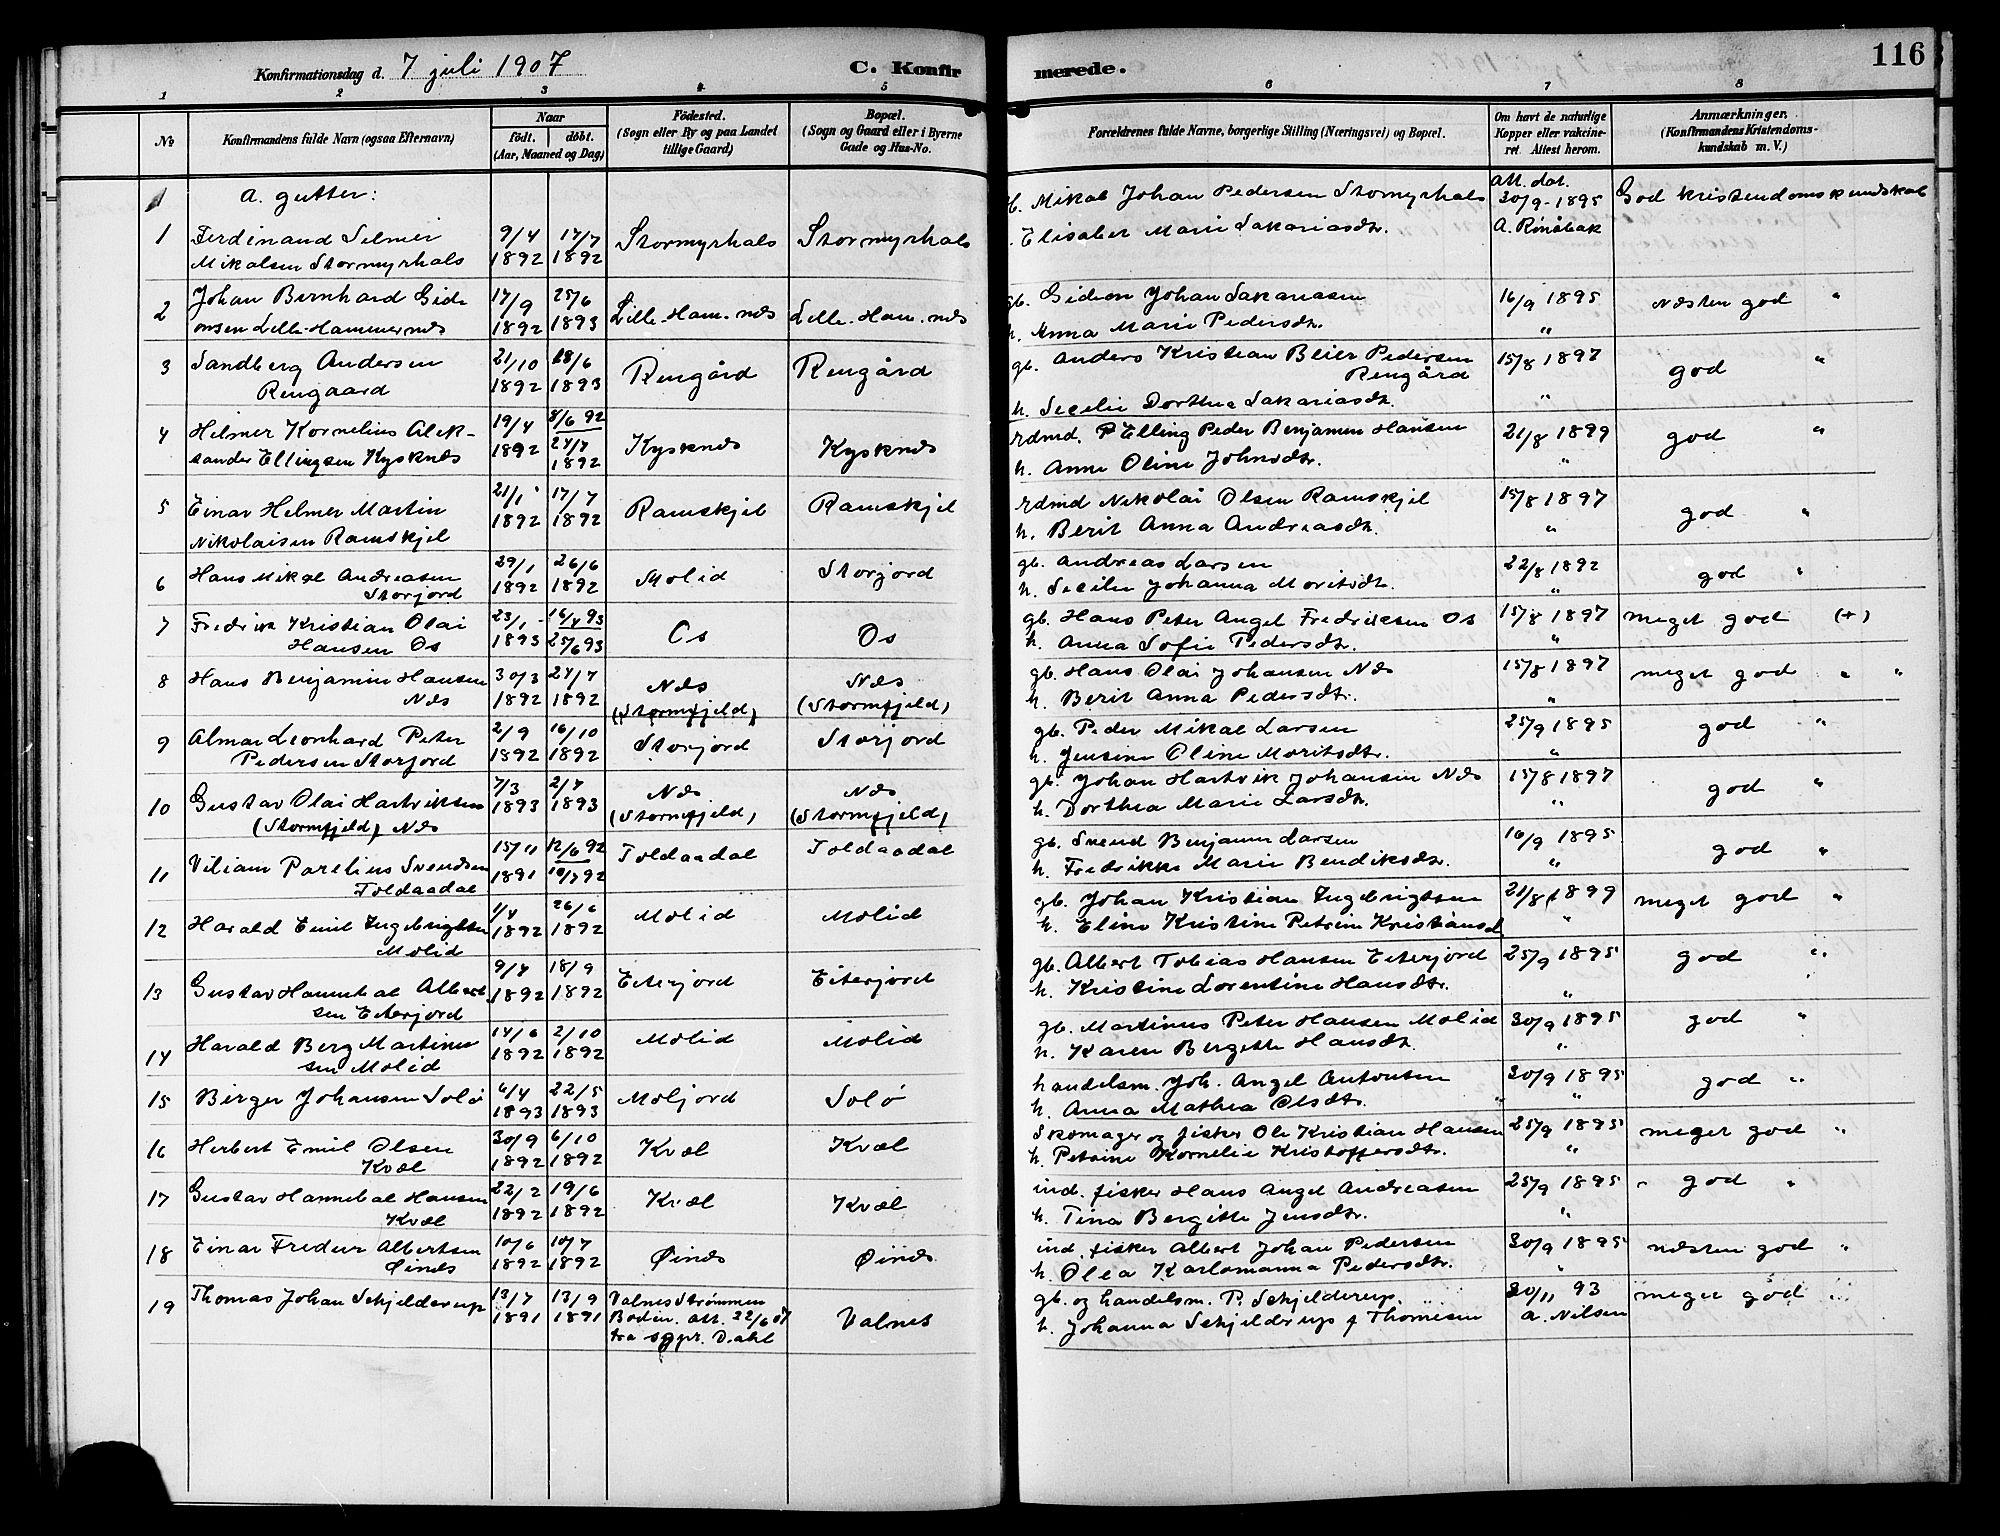 Konfirmationsdag d. 7 juli 1907
C. Konfirmerede.
116
1 2 3 4 5 6 7 8
No
Konfirmandens fulde Navn (ogsaa Efternavn)
Naar
födt. döbt.
(Aar, Maaned og Dag)
Födested.
(Sogn eller By og paa Landet
tillige Gaard)
Bopæl.
(Sogn og Gaard eller i Byerne
Gade og Hus-No.
Forældrenes fulde Navne, borgerlige Stilling (Næringsvei) og Bopæl.
Om havt de naturlige
Kopper eller vakcine-
ret. Attest herom.
Anmærkninger.
(Konfirmandens Kristendoms-
kundskab m. V.)
A. gutter:
1 Ferdinand Selmer
Mikalsen Stormyrhals
9/4 1892 17/7 1892 Stormyrhals Stormyrhals
Mikal Johan Pedersen Stormyrhals
Elisabet Marie Sakariasdtr.
Att. dat.
30/9-1895
God kristendomskundskab
2 Johan Bernhard Gide
onsen Lille-Hammernæs
17/9 1892 25/6 1893 Lille-Ham.næs Lille-Ham.næs
gb. Gideon Johan Sakariasen
h. Anna Marie Pedersdtr.
16/9 1895 "
næsten god "
3 Sandberg Andersen
Rengaard
21/10 1892 18/6 1893 Rengård Rengård
gb. Anders Kristian Beier Pedersen
Rengård
h. Secelie Dorthea Sakariasdtr.
15/8 1897 "
god "
4 Hilmer Kornelius Alek-
sander Ellingsen Kysknæs
19/4 1892 8/6 92 24/7 1892 Kysknæs Kysknæs
rdmd. Elling Peder Benjamin Hansen
h. Anne Oline Johnsdtr.
21/8 1899 "
god "
5 Einar Helmer Martin
Nikolaisen Ramskjel
21/1 1892 17/7 1892 Ramskjel Ramskjel
rdmd Nikolai Olsen Ramskjel
h. Berit Anna Andreasdtr.
15/8 1897 "
god "
6 Hans Mikal Andreasen
Storjord
29/1 1892 26/6 1892 Molid Storjord
gb. Andreas Larsen
h. Secelie Johanna Moritsdtr.
22/8 1892 "
god "
7 Fredrik Kristian Olai
Hansen Os
23/1 1893 16/4 93 25/6 93 Os Os
gb. Hans Peter Angel Fredriksen Os
h. Anna Sofie Pedersdtr.
15/8 1897 "
meget god (+)
8 Hans Benjamin Hansen
Næs
30/3 1892 24/7 1892 Næs Næs
(Stormfjeld) (Stormfjeld)
gb. Hans Olai Johansen Næs
h. Berit Anna Pedersdtr.
15/8 1897 "
meget god " "
9 Almar Leonhard Peter
Pedersen Storjord
2/9 1892 16/10 1892 Storjord Storjord
gb. Peder Mikal Larsen
h. Jensine Oline Moritsdtr.
25/9 1895 "
god "
10 Gustav Olai Hartviksen
(Stormfjeld) Næs
7/3 1893 2/7 1893 Næs Næs
(Stormfjeld) (Stormfjeld)
gb. Johan Hartvik Johansen Næs
h. Dorthea Marie Larsdtr.
15/8 1897 "
god "
11 Viliam Parelius Svendsen
Toldaadal
15/11 1891 12/6 92 10/7 92 Toldaadal Toldaadal
gb. Svend Benjamin Larsen
h. Fredrikke Marie Bendiksdtr.
16/9 1895 "
god "
12 Harald Emil Ingebrigtsen
Molid
1/4 1892 26/6 1892 Molid Molid
gb. Johan Kristian Ingebrigtsen
h. Eline Kristine Petrine Kristiansd.
21/8 1899 "
meget god "
13 Gustav Hannibal Albert
sen Eiterjord
9/4 1892 18/9 1892 Eiterjord Eiterjord
gb. Albert Tobias Hansen Eiterjord
h. Kristine Lorentine Hansdtr.
25/9 1895 "
god "
14 Harald Berg Martinus
sen Molid
14/6 1892 2/10 1892 Molid Molid
gb. Martinus Peter Hansen Molid
h. Karen Bergitte Hansdtr.
30/9 1895 "
god "
15 Birger Johansen Solø
6/4 1893 22/5 1893 Moljord Solø
handelsm. Joh. Angel Antonsen
h. Anna Mathea Olsdtr. "
30/9 1895 "
god "
16 Herbert Emil Olsen
Kvæl
30/9 1892 6/10 1892 Kvæl Kvæl
Skomager og fisker Ole Kristian Hansen
h. Petrine Kornelie Kristoffersdtr.
25/9 1895 "
meget god "
17 Gustav Hannibal Hansen
Kvæl
22/2 1892 19/6 1892 Kvæl Kvæl
ind. fisker Hans Angel Andreasen
h. Tina Bergitte Jensdtr.
25/9 1895 "
god "
18 Einar Albertsen
Øinæs
10/6 1892 10/7 1892 Øinæs Øinæs
ind. fisker Albert Johan Pedersen
h. Olea Karlomanna Pedersdtr.
30/9 1895 "
næsten god "
19 Thomas Johan Schjelderup
13/7 1891 13/9 1891
Valnes Strømmen
Bodin. att. 22/6 07
fra sgpr. Dahl
Valnes
gb. og handelsm. P. Schjelderup.
h. Johanna Schjelderup f Thomesen
30/11 93
A. Nilsen
meget god "